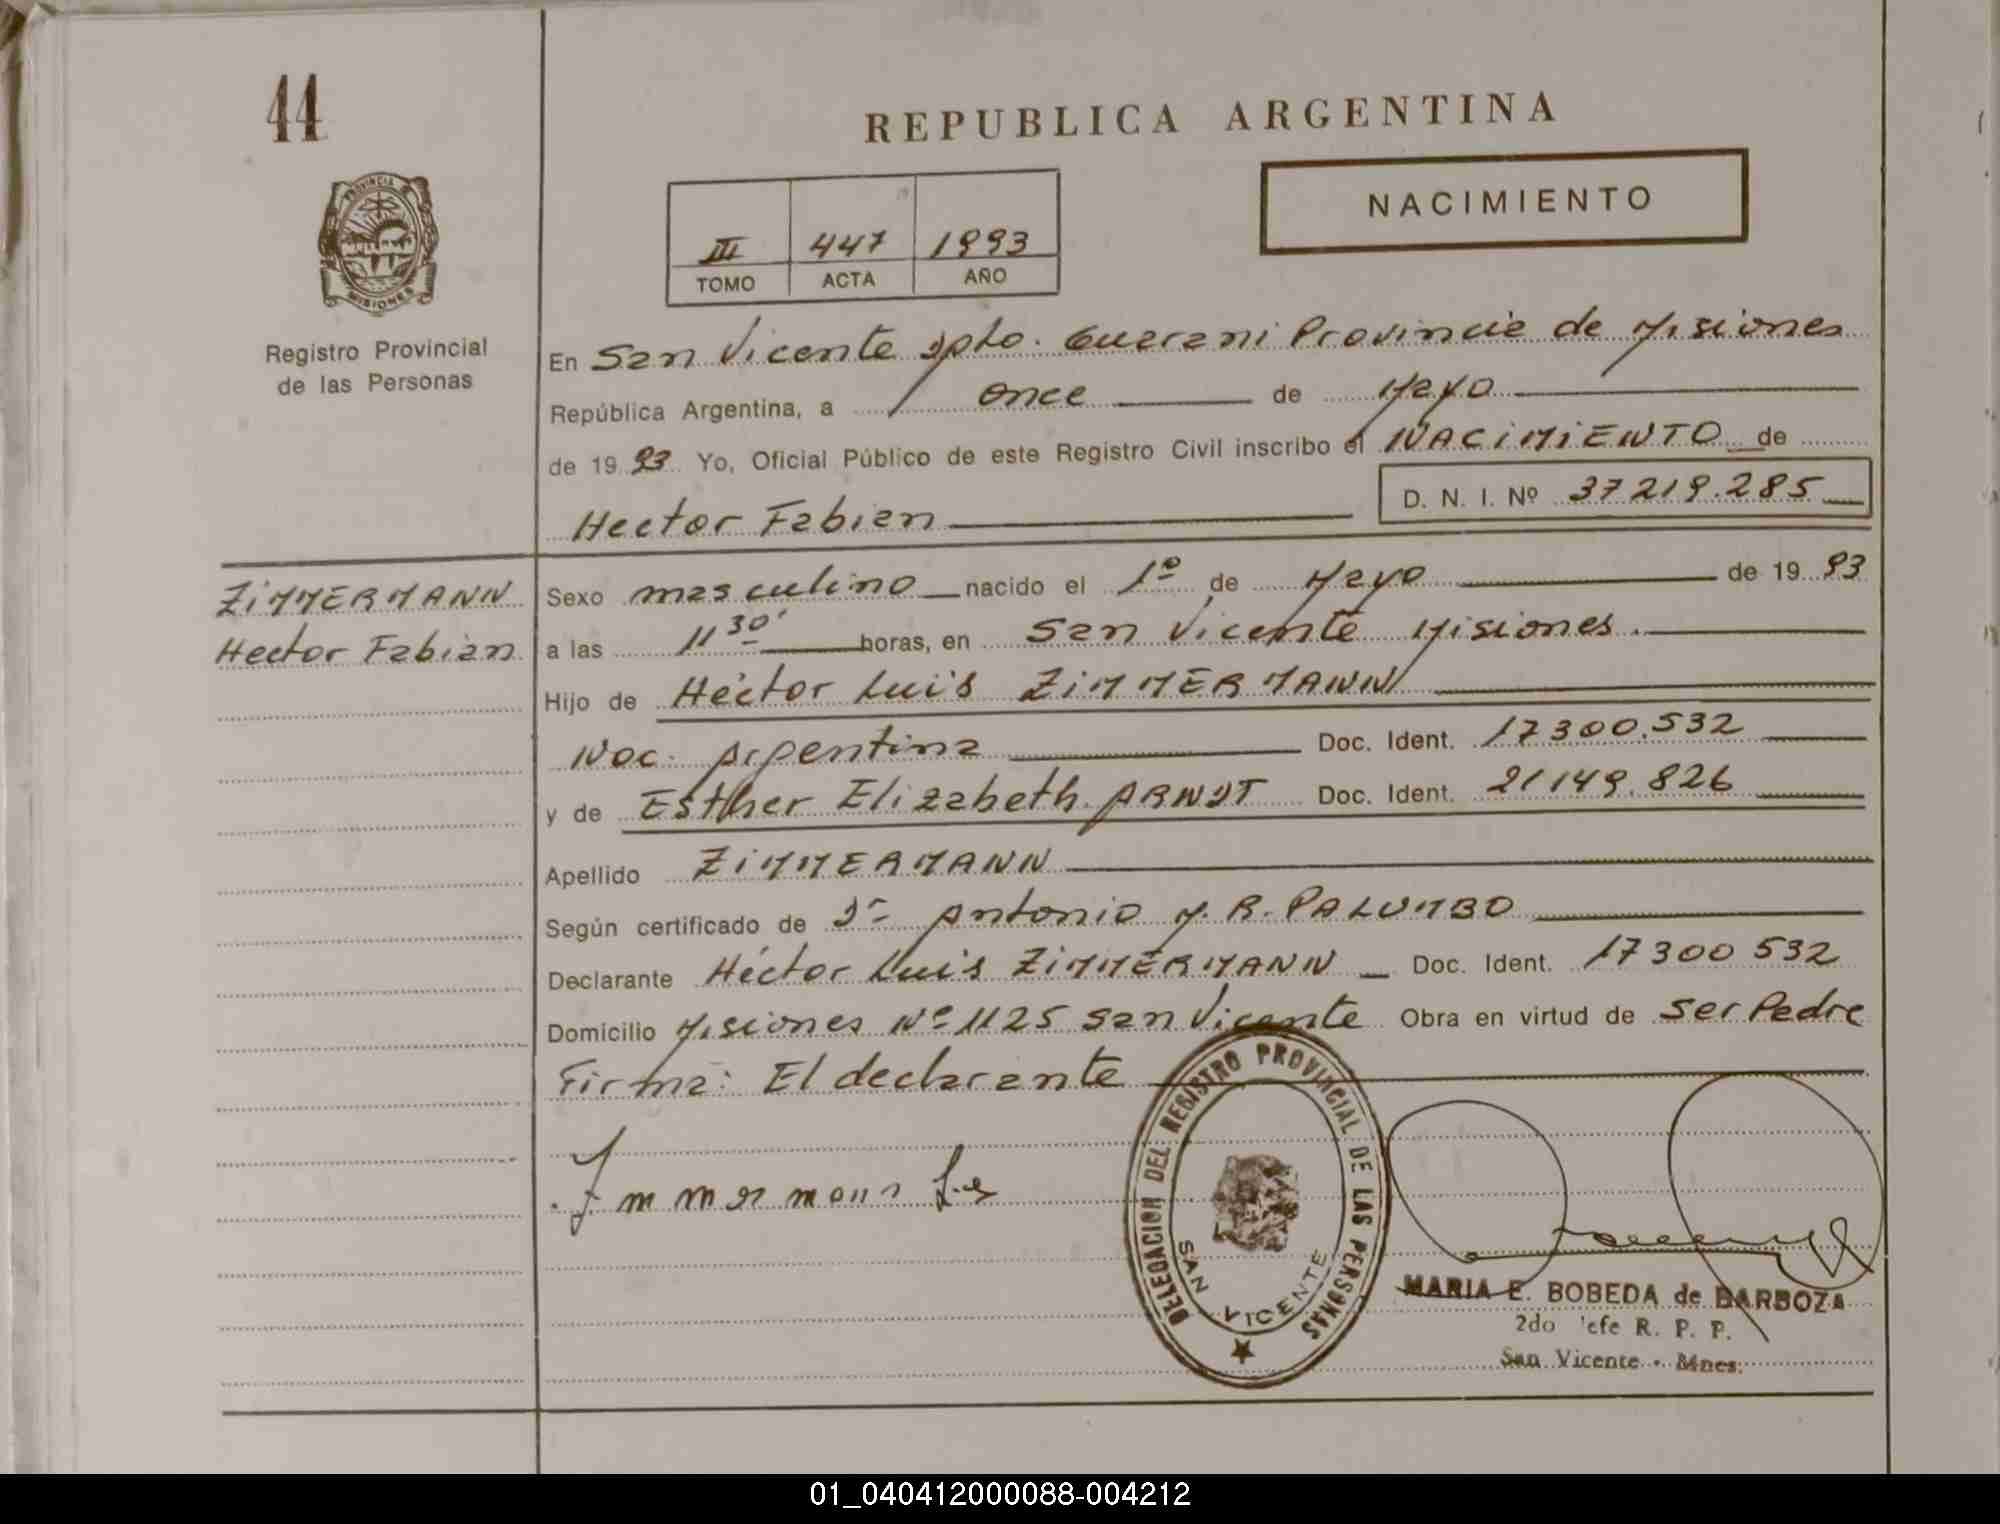 44
REPUBLICA ARGENTINA
NACIMIENTO
III 447 1993
TOMO ACTA AÑO
PROVINCIA
MISIONES
Registro Provincial
de las Personas
En San Vicente Dpto. Guarani Provincia de Misiones
República Argentina, a once de Mayo
de 19 93 Yo, Oficial Público de este Registro Civil inscribo el NACIMIENTO de
Hector Fabian D. N. I. Nº 37219.285
ZIMMERMANN
Hector Fabian
Sexo masculino nacido el 1º de Mayo de 19 93
a las 11 30' horas, en San Vicente Misiones.
Hijo de Héctor Luis ZIMMERMANN
Nac. Argentina Doc. Ident. 17300.532
y de Esther Elizabeth ARNDT Doc. Ident. 21149.826
Apellido ZIMMERMANN
Según certificado de Dr Antonio M. R. PALUMBO
Declarante Héctor Luis ZIMMERMANN Doc. Ident. 17300 532
Domicilio Misiones Nº 1125 San Vicente Obra en virtud de Ser Padre
Firma: El declarante
DELEGACION DEL REGISTRO PROVINCIAL DE LAS PERSONAS
SAN VICENTE
MARIA E. BOBEDA de BARBOZA
2do Jefe R. P. P.
San Vicente - Mnes.
01_040412000088-004212